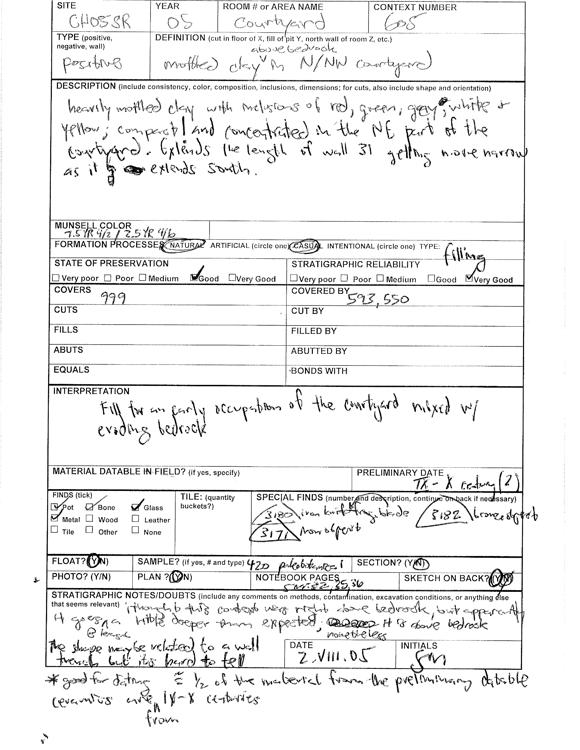 SITE YEAR ROOM # or AREA NAME CONTEXT NUMBER
CH05SR 05 Courtyard 605
TYPE (positive, negative, wall) DEFINITION (cut in floor of X, fill of pit Y, north wall of room Z, etc.)
above bedrock
positive mottled clay in N/NW courtyard
DESCRIPTION (include consistency, color, composition, inclusions, dimensions; for cuts, also include shape and orientation)
heavily mottled clay with inclusions of red, green, grey, white +
yellow; compact and concentrated in the NE part of the
courtyard. Extends the length of wall 31 getting more narrow
as it extends south.
MUNSELL COLOR
7.5YR 4/2 / 2.5YR 4/6
FORMATION PROCESSES NATURAL ARTIFICIAL (circle one) CASUAL INTENTIONAL (circle one) TYPE: filling
STATE OF PRESERVATION STRATIGRAPHIC RELIABILITY
Very poor Poor Medium Good Very Good Very poor Poor Medium Good Very Good
COVERS 999 COVERED BY 593, 550
CUTS CUT BY
FILLS FILLED BY
ABUTS ABUTTED BY
EQUALS BONDS WITH
INTERPRETATION
Fill for an early occupation of the courtyard mixed w/
eroding bedrock
MATERIAL DATABLE IN FIELD? (if yes, specify) PRELIMINARY DATE
IX - X century (?)
FINDS (tick) TILE: (quantity buckets?) SPECIAL FINDS (number and description, continue on back if necessary)
Pot Bone Glass 3180 iron blade 3182 bronze object
Metal Wood Leather 3171 iron object
Tile Other None
FLOAT? (Y/N) SAMPLE? (if yes, # and type) 420 SECTION? (Y/N)
PHOTO? (Y/N) PLAN? (Y/N) NOTEBOOK PAGES SKETCH ON BACK? (Y/N)
STRATIGRAPHIC NOTES/DOUBTS (include any comments on methods, contamination, excavation conditions, or anything else
that seems relevant) I thought this context was right above bedrock, but apparently
it goes a little deeper than expected, it is above bedrock
nonetheless
The shape may be related to a wall
trench but it's hard to tell
DATE INITIALS
2.VIII.05 SM
* good for dating ≈ 1/2 of the material from the preliminary datable
ceramics are from IX-X centuries